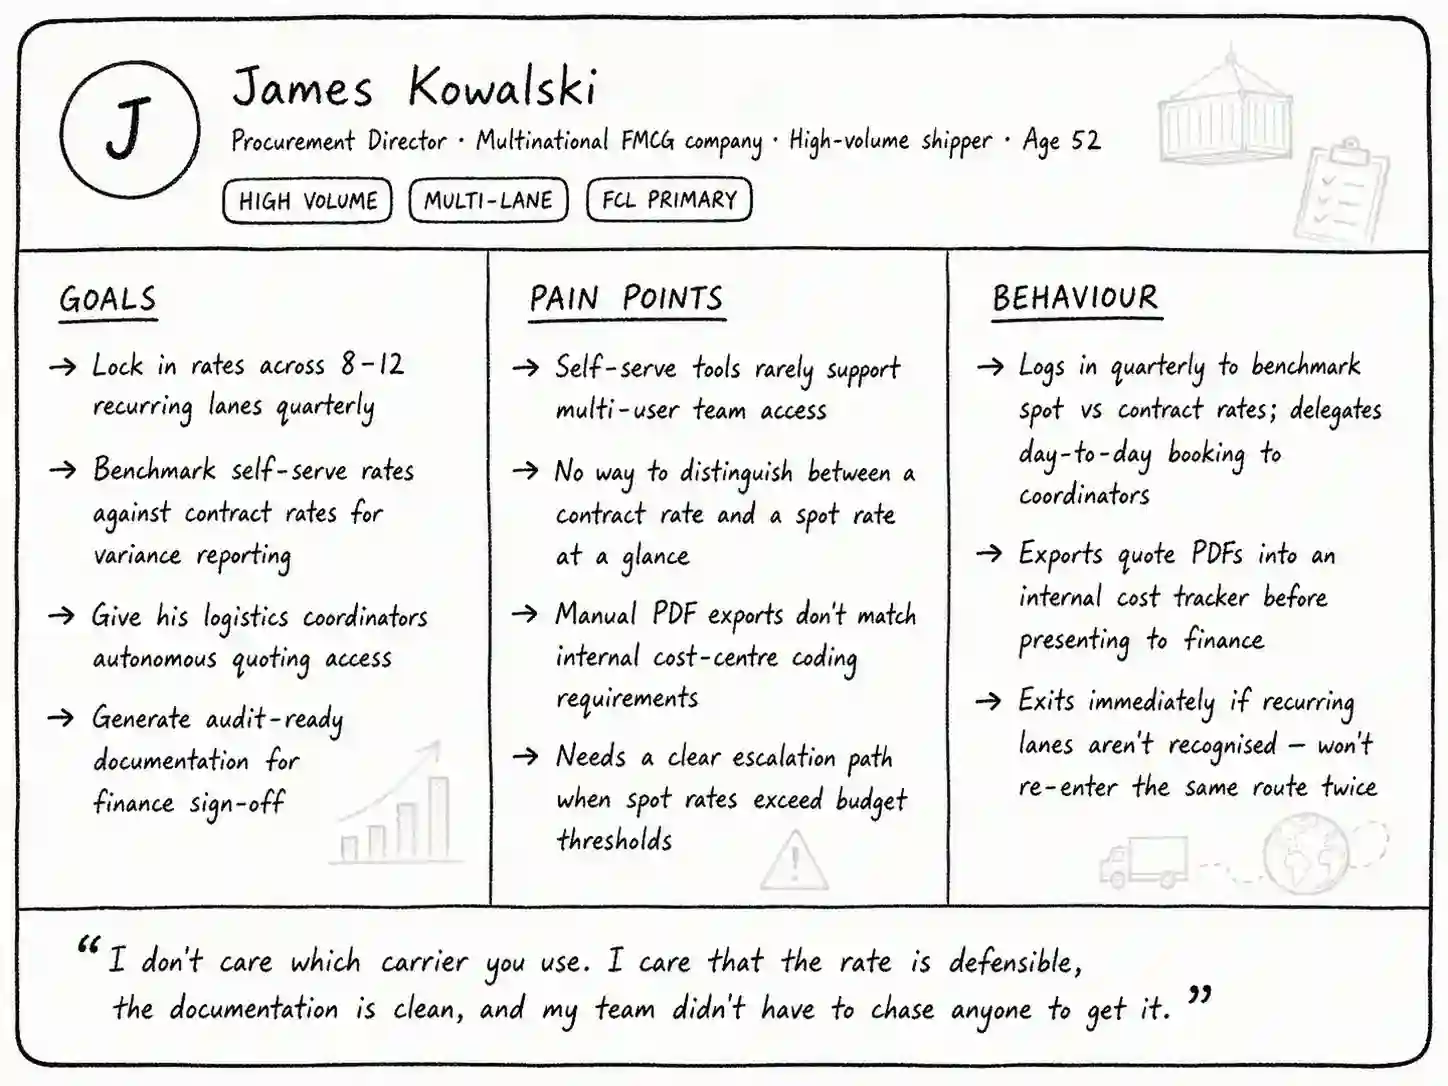 J
James Kowalski
Procurement Director · Multinational FMCG company · High-volume shipper · Age 52
HIGH VOLUME
MULTI-LANE
FCL PRIMARY
GOALS
→ Lock in rates across 8-12
recurring lanes quarterly
→ Benchmark self-serve rates
against contract rates for
variance reporting
→ Give his logistics coordinators
autonomous quoting access
→ Generate audit-ready
documentation for
finance sign-off
PAIN POINTS
→ Self-serve tools rarely support
multi-user team access
→ No way to distinguish between a
contract rate and a spot rate
at a glance
→ Manual PDF exports don't match
internal cost-centre coding
requirements
→ Needs a clear escalation path
when spot rates exceed budget
thresholds
!
BEHAVIOUR
→ Logs in quarterly to benchmark
spot vs contract rates; delegates
day-to-day booking to
coordinators
→ Exports quote PDFs into an
internal cost tracker before
presenting to finance
→ Exits immediately if recurring
lanes aren't recognised – won't
re-enter the same route twice
“I don't care which carrier you use. I care that the rate is defensible,
the documentation is clean, and my team didn't have to chase anyone to get it.”